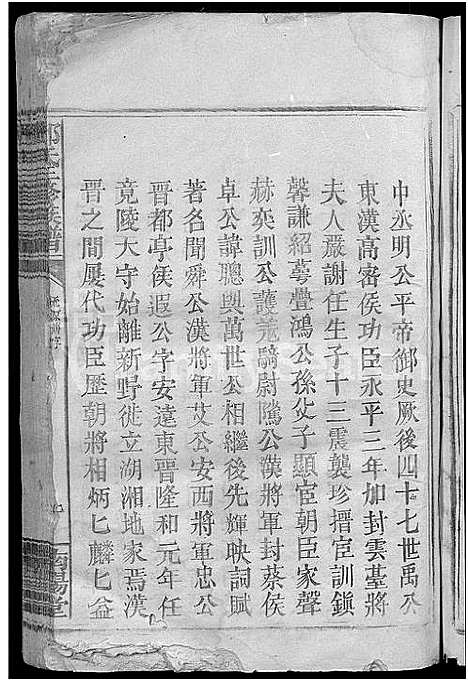 中丞明公平帝御史厥後四十七世禹公
東漢高密侯功臣永平三年加封雲臺將
夫人嚴謝任生子十三震襲珍搢宦訓鎮
馨謙紹蕚疊鴻公孫父子顯宦朝臣家聲
赫奕訓公護羌騎尉隲公漢將軍封蔡侯
卓公諱聰與萬世公相繼後先輝映詞賦
著名聞舜公漢將軍艾公安西將軍忠公
晋都亭侯遐公字安遠東晋隆和元年任
竟陵大守始離新野徙立湖湘地家焉漢
晋之間屢代功臣歷朝將相炳匕麟匕益
氏三修族譜
南陽堂